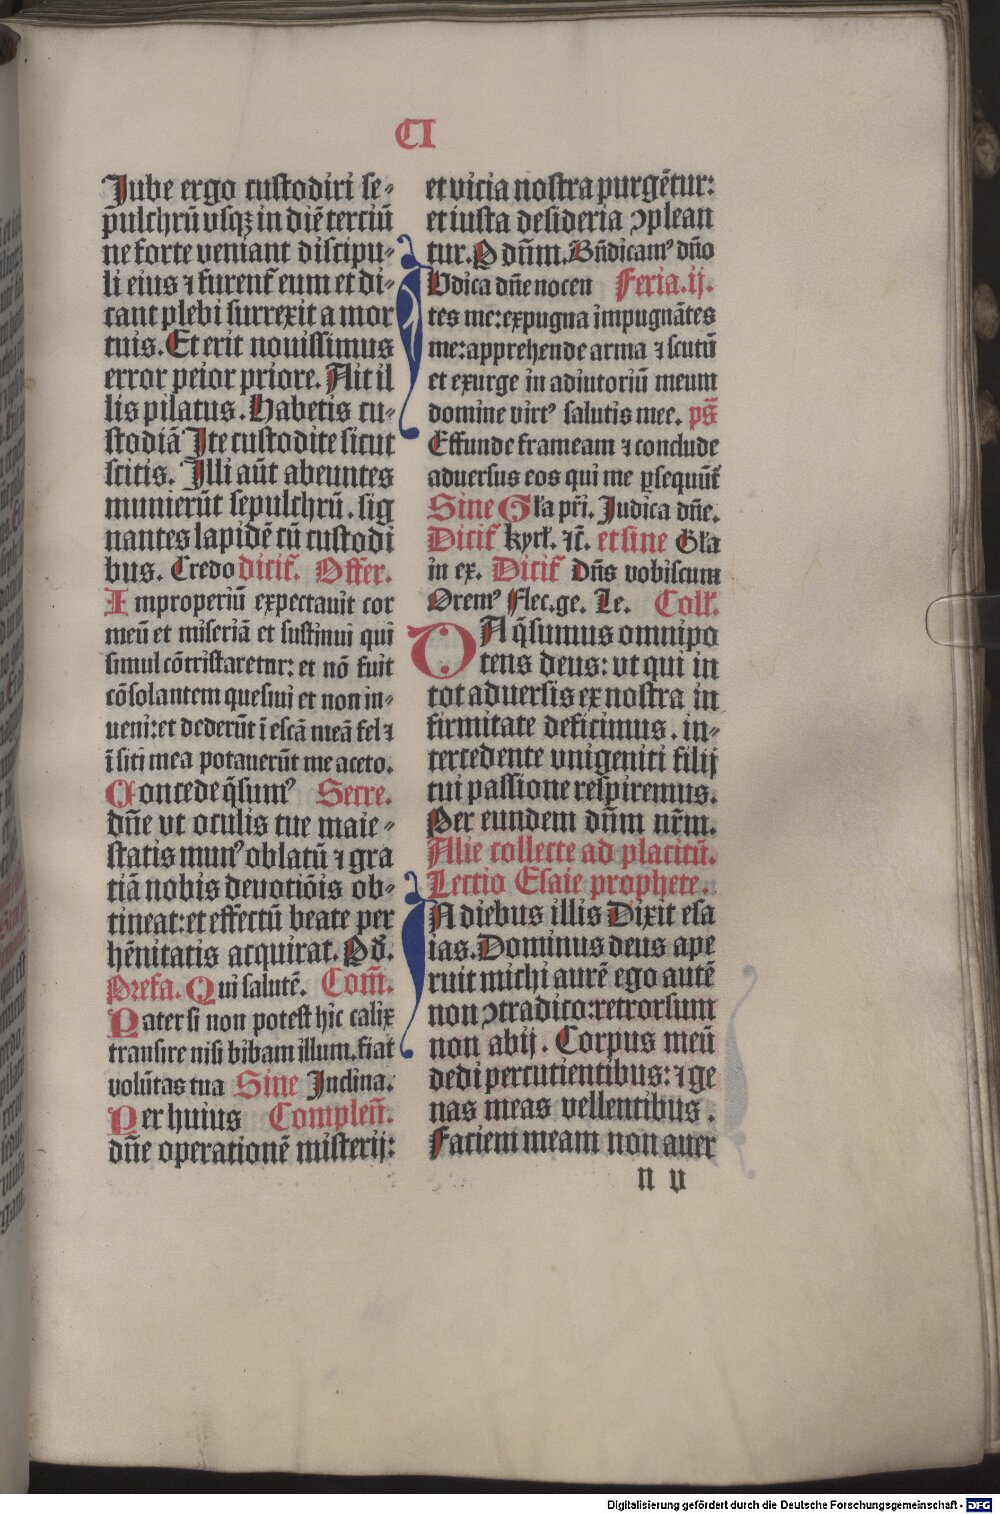 CI
Iube ergo custodiri se-
pulchrū vsqꝫ in diē terciū
ne forte veniant discipu-
li eius ⁊ furent᷑ eum et di-
cant plebi surrexit a mor
tuis. Et erit nouissimus
error peior priore. Ait il
lis pilatus. Habetis cu-
stodiā Ite custodite sicut
scitis. Illi aūt abeuntes
munierūt sepulchrū. sig
nantes lapidē cū custodi
bus. Credo dicit᷑. Offer̄.
Improperiū expectauit cor
meū et miseriā et sustinui qui
simul cōtristaretur: et nō fuit
cōsolantem quesiui et non in-
ueni: et dederūt ī escā meā fel ⁊
ī siti mea potauerūt me aceto.
Concede q̄sumꝰ Secre.
dn̄e vt oculis tue maie-
statis munꝰ oblatū ⁊ gra
tiā nobis deuotiōis ob-
tineat: et effectū beate per
hēnitatis acquirat. P d̄.
Prefa. Qui salutē. Com̄.
Pater si non potest hic calix
transire nisi bibam illum. fiat
volūtas tua Sine Inclina.
Per huius Complen̄.
dn̄e operationē misterij:
et vicia nostra purgētur:
et iusta desideria ↄplean
tur. P dn̄m. Bn̄dicamꝰ dn̄o
Iudica dn̄e nocen Feria. ij.
tes me: expugna impugnātes
me: apprehende arma ⁊ scutū
et exurge in adiutoriū meum
domine virtꝰ salutis mee. ps̄
Effunde frameam ⁊ conclude
aduersus eos qui me ꝑsequūt᷑
Sine Gl̄a pr̄i. Judica dn̄e.
Dicit᷑ kyrl̄. ⁊c̄. et sine Gl̄a
in ex. Dicit᷑ Dn̄s vobiscum
Oremꝰ Flec. ge. Le. Coll̄.
DA q̄sumus omnipo
tens deus: vt qui in
tot aduersis ex nostra in
firmitate deficimus. in-
tercedente vnigeniti filij
tui passione respiremus.
Per eundem dn̄m nr̄m.
Alie collecte ad placitū.
Lectio Esaie prophete.
IN diebus illis Dixit esa
ias. Dominus deus ape
ruit michi aurē ego autē
non ↄtradico: retrorsum
non abij. Corpus meū
dedi percutientibus: ⁊ ge
nas meas vellentibus.
Faciem meam non auer
n v
Digitalisierung gefördert durch die Deutsche Forschungsgemeinschaft - DFG